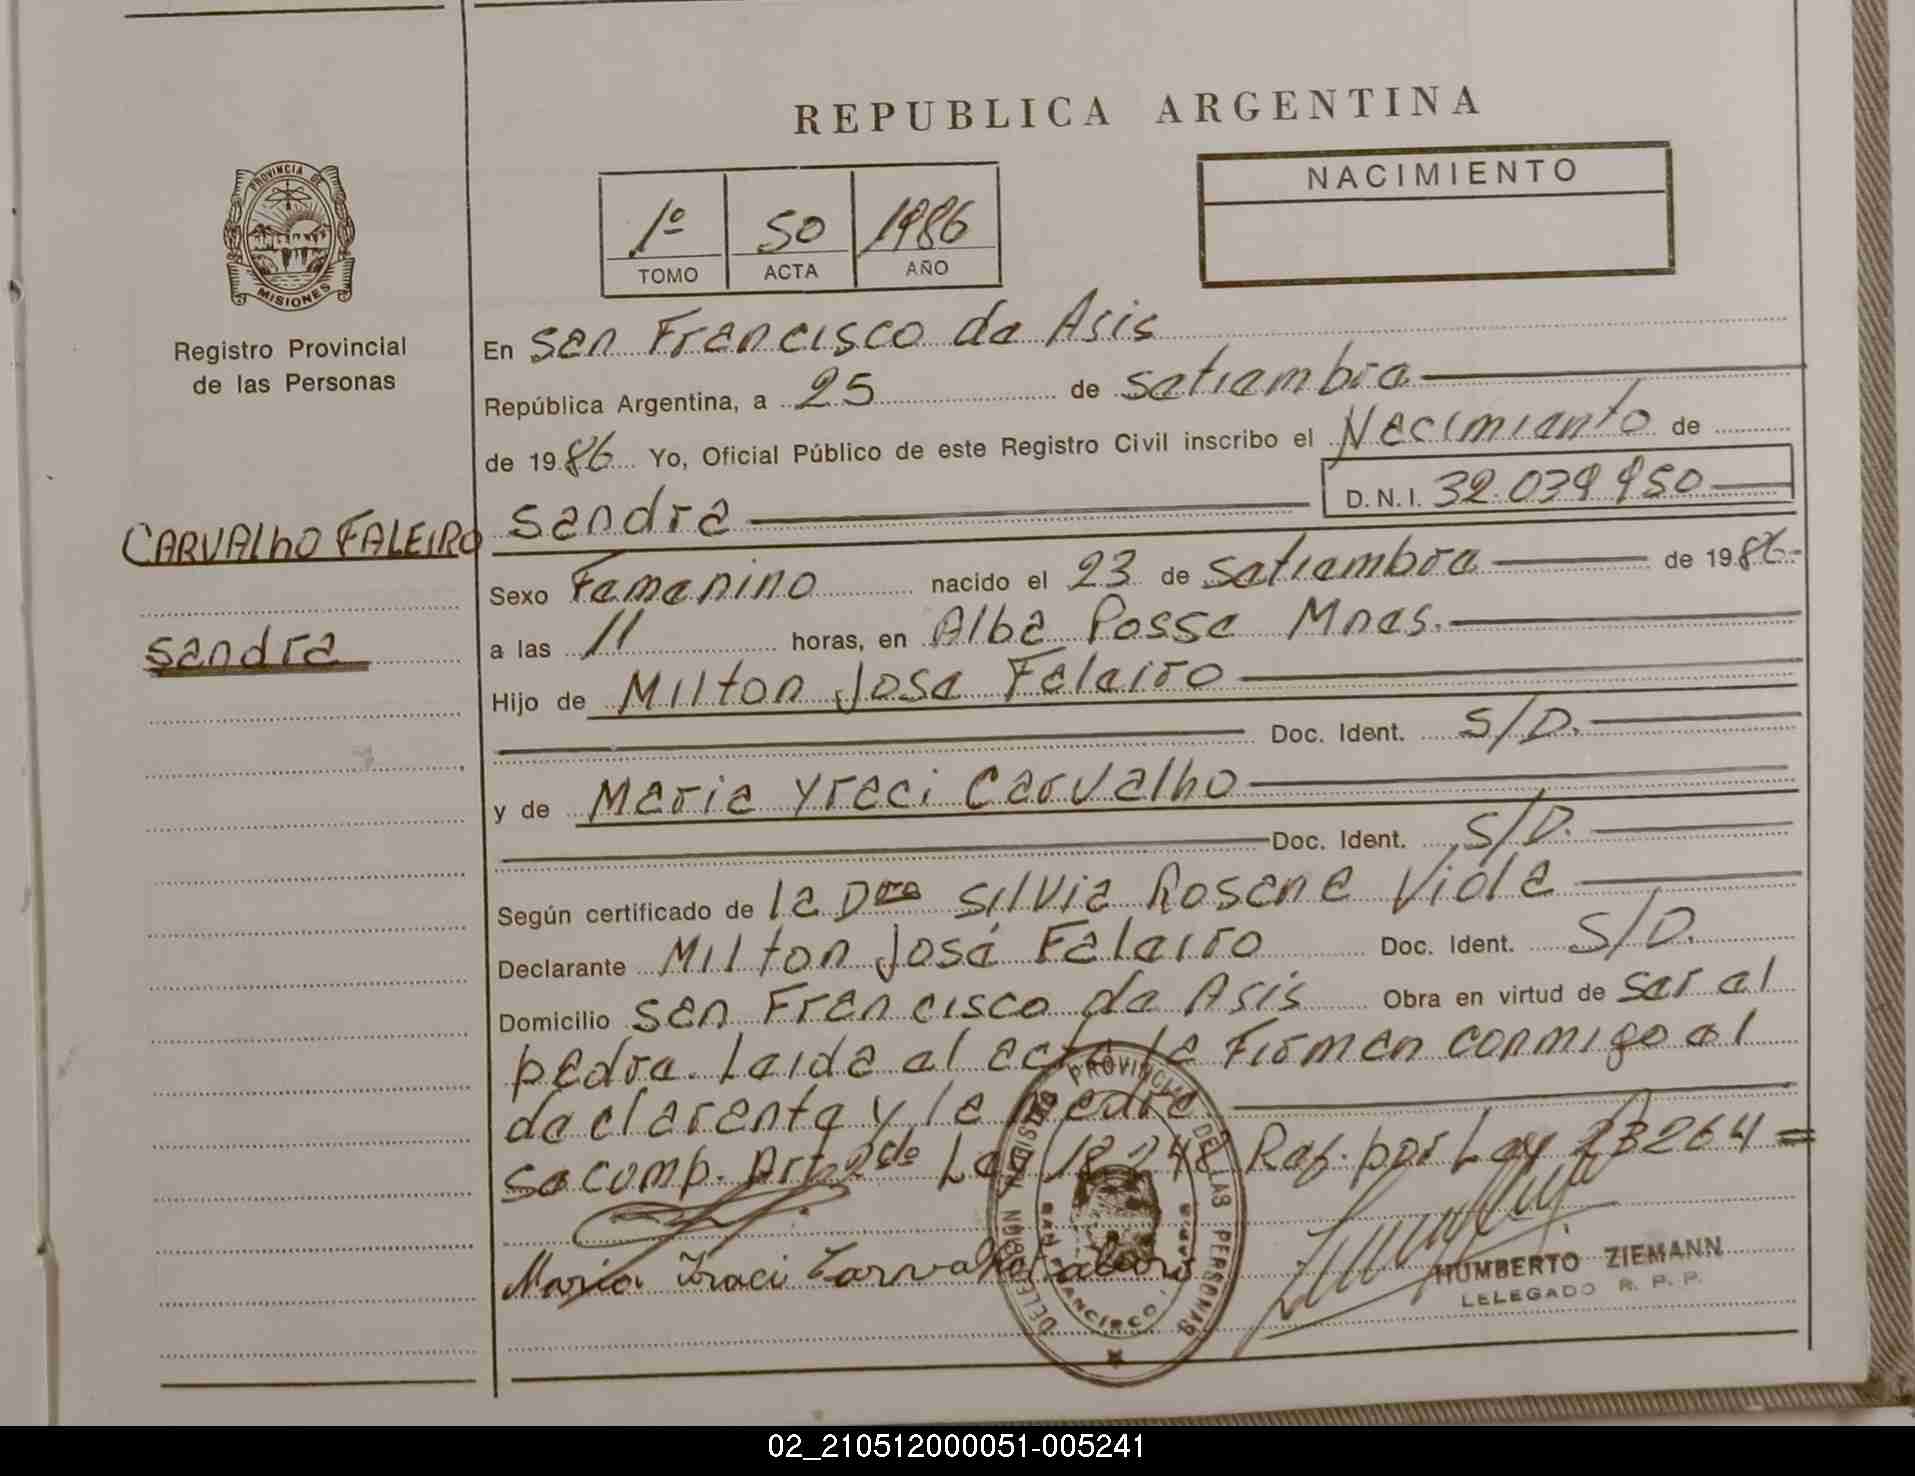 REPUBLICA ARGENTINA
PROVINCIA DE
MISIONES
Registro Provincial
de las Personas
1º 50 1986
TOMO ACTA AÑO
NACIMIENTO
En San Francisco de Asis
República Argentina, a 25 de setiembre
de 1986 Yo, Oficial Público de este Registro Civil inscribo el Nacimiento de
D. N. I. 32.039.950
CARVALHO FALEIRO
sandra
sandra
Sexo Femenino nacido el 23 de Setiembre de 1986
a las 11 horas, en Alba Posse Mnes.
Hijo de Milton Jose Faleiro
Doc. Ident. S/D.
y de Maria Yraci Carvalho
Doc. Ident. S/D.
Según certificado de la Dra Silvia Rosana Viola
Declarante Milton José Faleiro Doc. Ident. S/D.
Domicilio San Francisco de Asis Obra en virtud de ser el
padre. Leida el acta la Firman conmigo el
declarante y la madre
se comp. Art 2do Ley 18248 Ref. por Ley 23264 =
Maria Iraci Carvalho
HUMBERTO ZIEMANN
LELEGADO R. P. P.
PROVINCIAL DE LAS PERSONAS
02_210512000051-005241